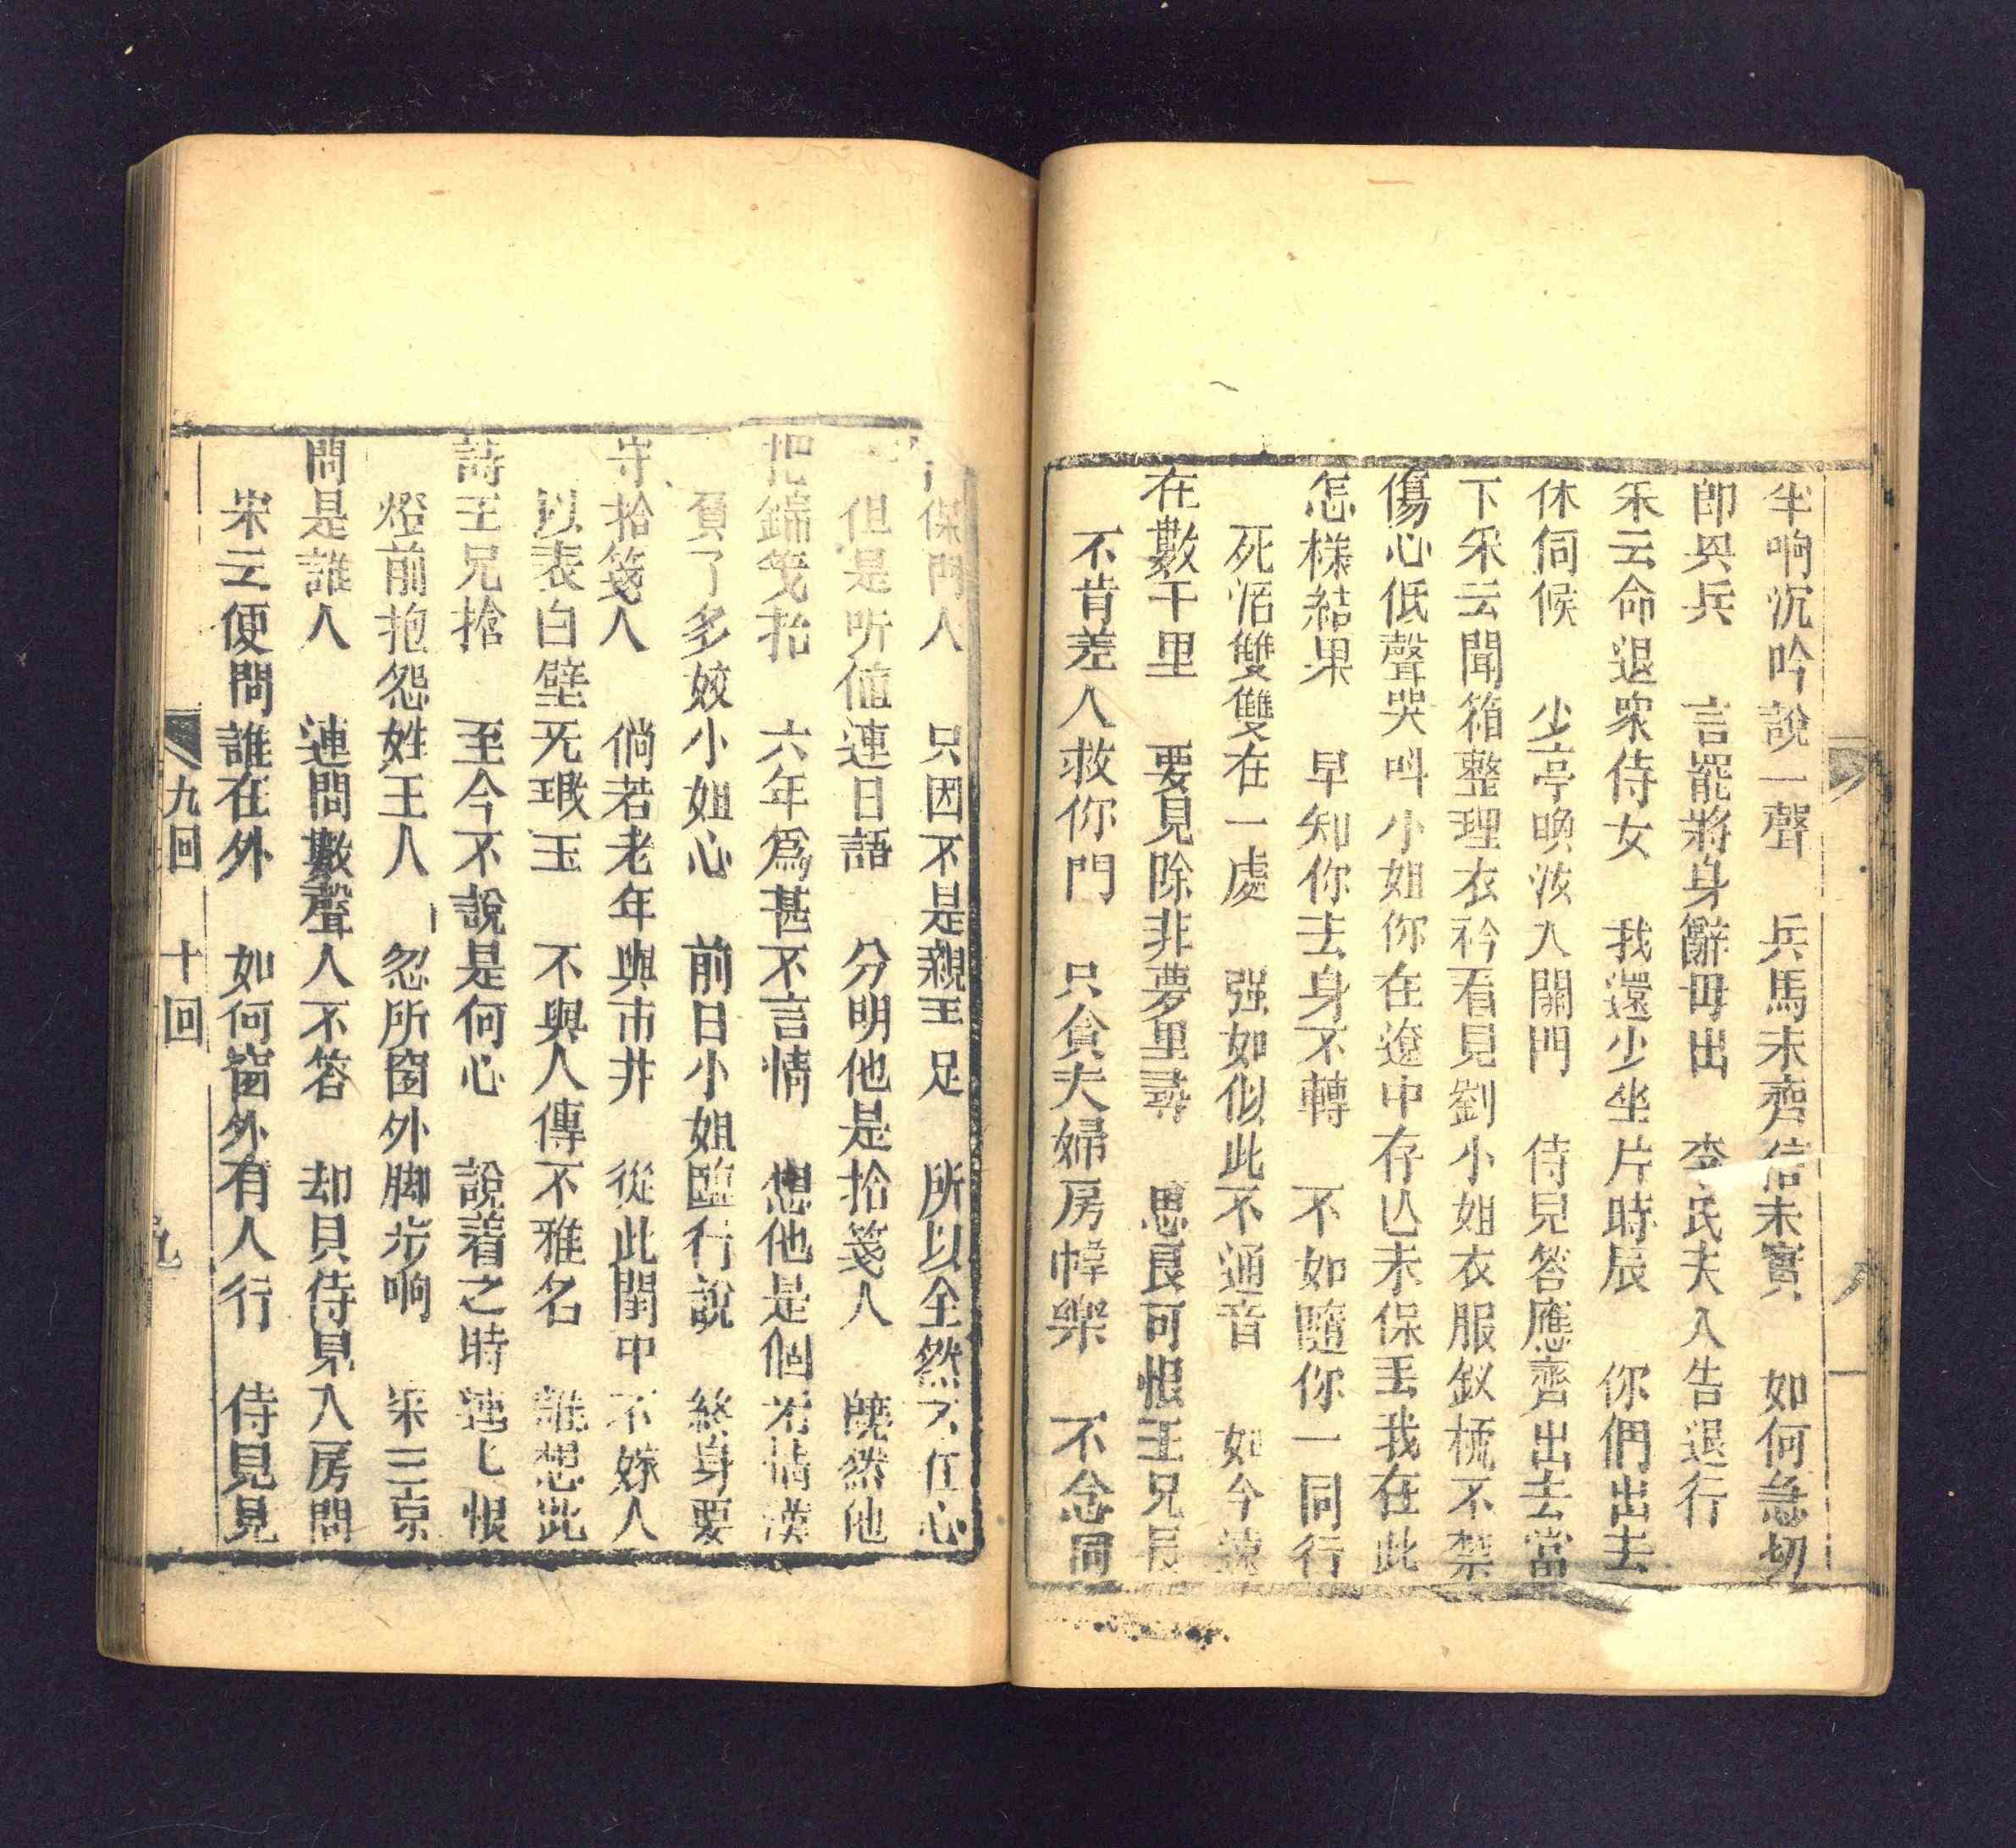 半响沉吟說一聲　兵馬未齊信未實　如何急切
即與兵　言罷將身辭母出　李氏夫人告退行
采云命退衆侍女　我還少坐片時辰　你們出去
休伺候　少亭喚汝入關門　侍兒答應齊出去當
下采云聞箱整理衣衿看見劉小姐衣服釵梳不禁
傷心低聲哭呌小姐你在遼中存亾未保丟我在此
怎樣結果　早知你去身不轉　不如隨你一同行
死活雙雙在一處　强如似此不通音　如今遠
在數千里　要見除非夢里尋　思良可恨王兄長
不肯差人救你門　只貪夫婦房幃樂　不念同
保門人　只因不是親王足　所以全然不在心
但是听值連日語　分明他是拾箋人　旣然他
把鍴笺拾　六年爲甚不言情　想他是個有情漢
負了多姣小姐心　前日小姐臨行說　終身要
守拾箋人　倘若老年與市井　從此閨中不嫁人
以表白璧无瑕玉　不與人傳不雅名　誰想此
詩王兄搶　至今不說是何心　說着之時連七恨
燈前抱怨姓王人　忽所窗外脚步响　采云京
問是誰人　連問數聲人不答　却貝侍見入房問
宋云便問誰在外　如何窗外有人行　侍見見
九回　十回
九